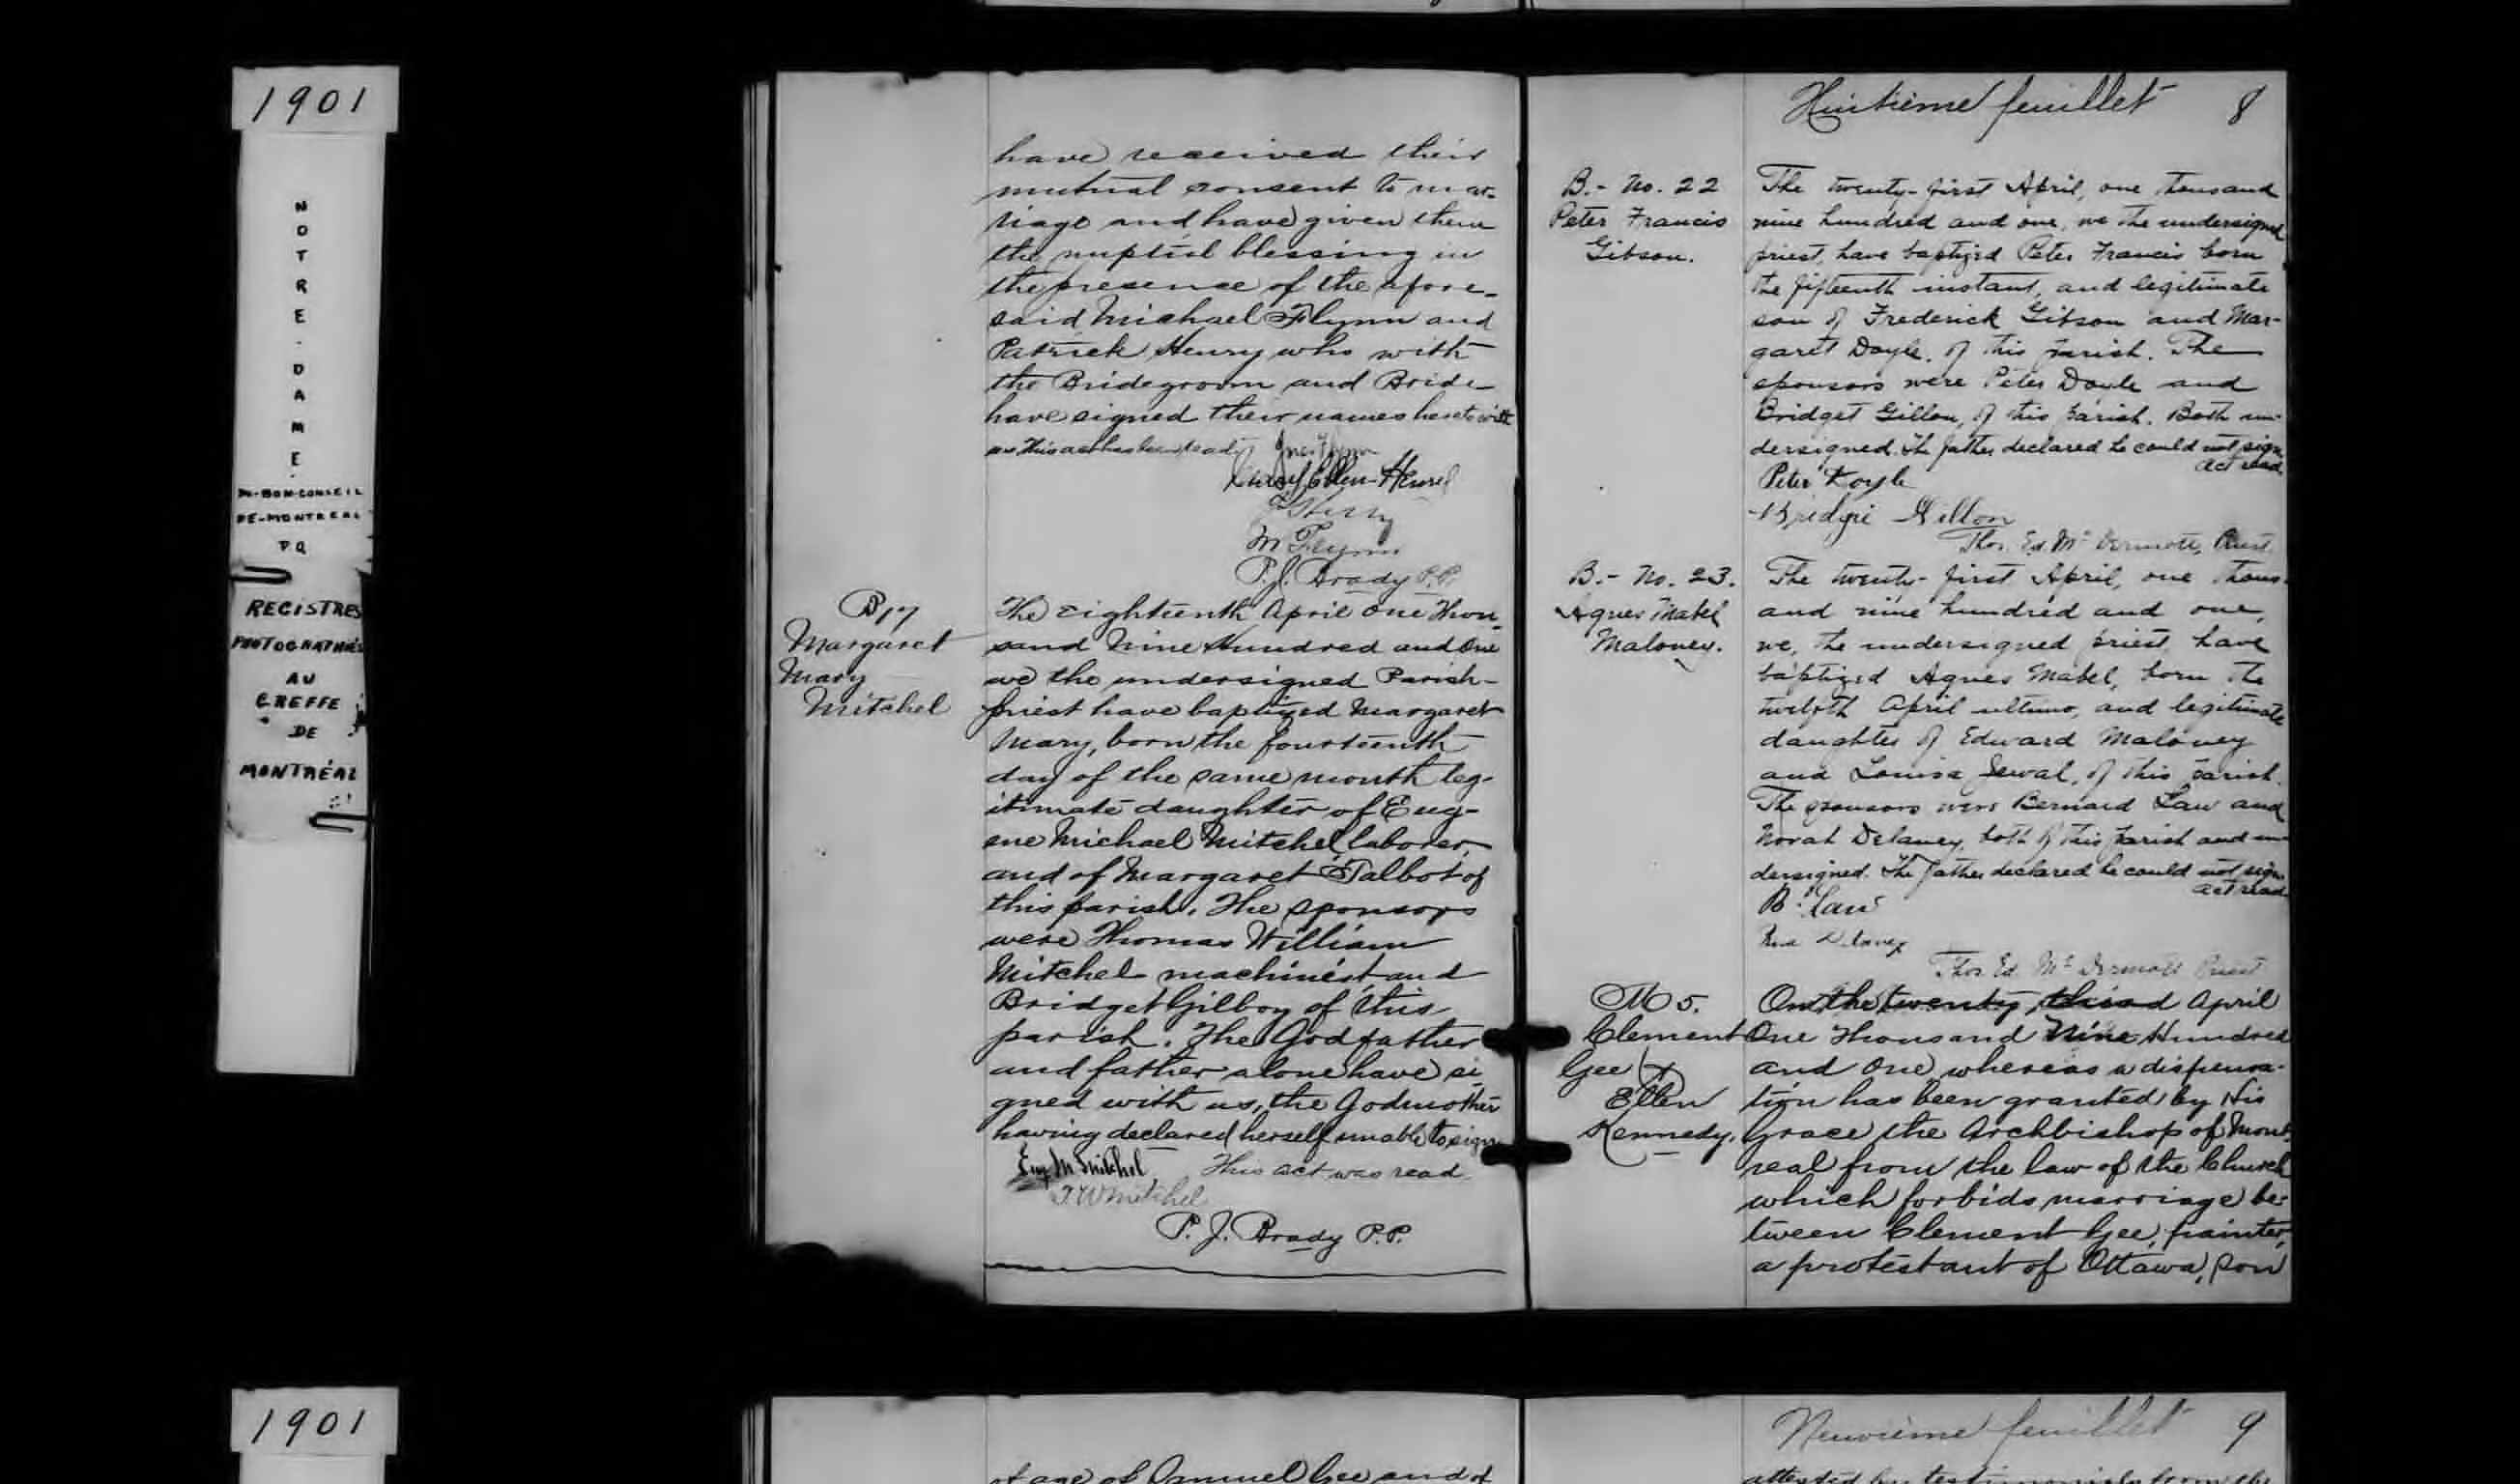 1901
NOTRE-DAME
DU-BON-CONSEIL
DE-MONTREAL
P.Q.
REGISTRES
PHOTOGRAPHIÉS
AU
GREFFE
DE
MONTRÉAL
have received their
mutual consent to mar-
riage and have given them
the nuptial blessing in
the presence of the afore-
said Michael Flynn and
Patrick Henry who with
the Bridegroom and Bride
have signed their names hereto with
us This act has been read
Ellen Henry
P Henry
M Flynn
P. J. Brady P.P.
Margaret
Mary
Mitchel
The eighteenth April One Thou-
sand Nine Hundred and One
we the undersigned Parish-
priest have baptized Margaret
Mary, born the fourteenth
day of the same month leg-
itimate daughter of Eug-
ene Michael Mitchel laborer,
and of Margaret Talbot of
this parish. The sponsors
were Thomas William
Mitchel machinist and
Bridget Gilboy of this
parish. The Godfather
and father alone have si-
gned with us, the Godmother
having declared herself unable to sign
Eug M Mitchel This act was read
T. W Mitchel
P. J. Brady P.P.
Huitième feuillet 8
B.- No. 22
Peter Francis
Gibson.
The twenty-first April, one thousand
nine hundred and one, we the undersigned
priest, have baptized Peter Francis born
the fifteenth instant, and legitimate
son of Frederick Gibson and Mar-
garet Doyle, of this parish. The
sponsors were Peter Doyle and
Bridget Gillon, of this parish. Both un-
dersigned. The father declared he could not sign.
Act read.
Peter Doyle
Bridgie Gillon
Thos. Ed. McDermott, Priest
B.- No. 23.
Agnes Mabel
Maloney.
The twenty-first April, one thous-
and nine hundred and one,
we, the undersigned priest, have
baptized Agnes Mabel, born the
twelfth April ultimo, and legitimate
daughter of Edward Maloney
and Louisa Jewal, of this parish.
The sponsors were Bernard Law and
Norah Delaney, both of this parish and un-
dersigned. The father declared he could not sign.
Act read
B. Law
Delaney
Thos. Ed. McDermott Priest
M 5.
Clement
Gee &
Ellen
Kennedy.
On the twenty third April
One Thousand Nine Hundred
and One, whereas a dispensa-
tion has been granted by His
Grace the Archbishop of Mont-
real from the law of the Church
which forbids marriage be-
tween Clement Gee, painter,
a protestant of Ottawa, son
1901
Neuvième feuillet 9
of age of Samuel Gee and of
attested by testimonials from the